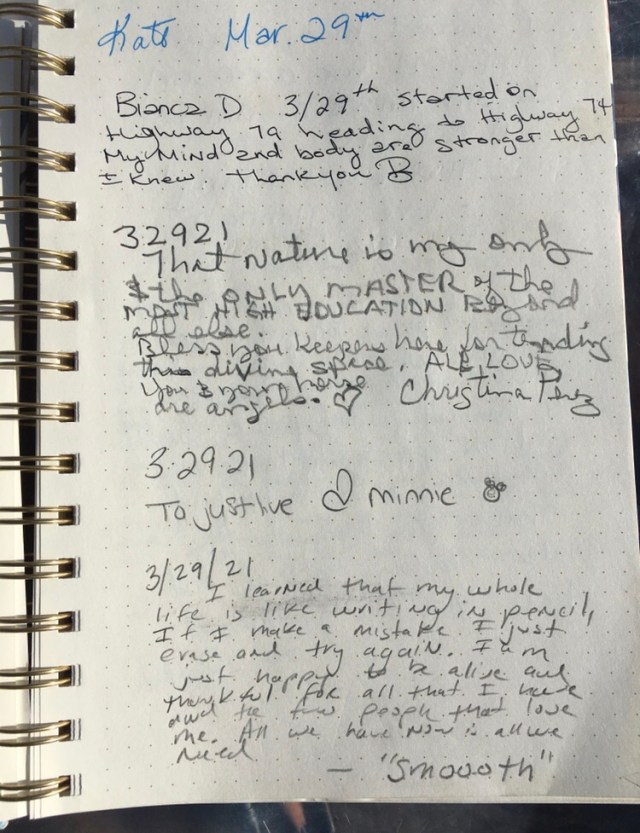 Kats Mar. 29th
Bianca D 3/29th started on
Highway 79 heading to Highway 74
My Mind and body are stronger than
I knew. Thankyou B
3.29 21
That Nature is my only
& the ONLY MASTER of the
MOST HIGH EDUCATION Beyond
all else.
Bless you keepers here for tending
this divine space. ALL LOVE,
You & your horse
are angels. ♡ Christina Perez
3.29 21
To just live ♡ minnie
3/29/21
I learned that my whole
life is like writing in pencil,
If I make a mistake I just
erase and try again. I am
just happy to be alive and
thankful for all that I have
and the few people that love
me. All we have now is all we
need
— "Smoooth"